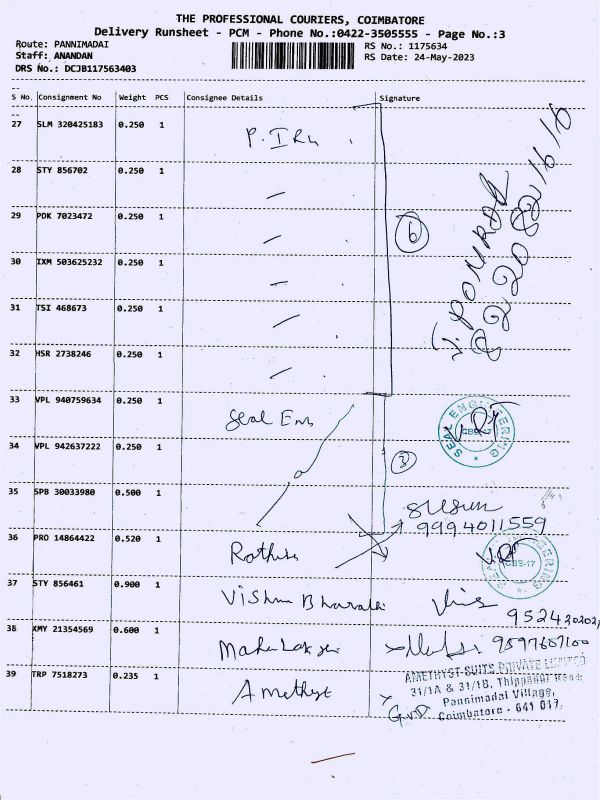 THE PROFESSIONAL COURIERS, COIMBATORE
Delivery Runsheet - PCM - Phone No.:0422-3505555 - Page No.:3
Route: PANNIMADAI
RS No.: 1175634
Staff: ANANDAN
RS Date: 24-May-2023
DRS No.: DCJB117563403
S No. Consignment No Weight PCS Consignee Details Signature
27 SLM 320425183 0.250 1
28 STY 856702 0.250 1
29 PDK 7023472 0.250 1
6
30 IXM 503625232 0.250 1
31 TSI 468673 0.250 1
32 HSR 2738246 0.250 1
33 VPL 940759634 0.250 1 Seal Eng
SEAL ENGINEERING
CBE-17
34 VPL 942637222 0.250 1
3
35 SPB 30033980 0.500 1
9994011559
36 PRO 14864422 0.520 1
CBE-17
37 STY 856461 0.900 1 Vishnu Bharath
38 KMY 21354569 0.600 1 9597607100
39 TRP 7518273 0.235 1 Amethyst
AMETHYST SUITS PRIVATE LIMITED
31/1A & 31/1B, Thippanur Road
Pannimadai Village,
Coimbatore - 641 017.